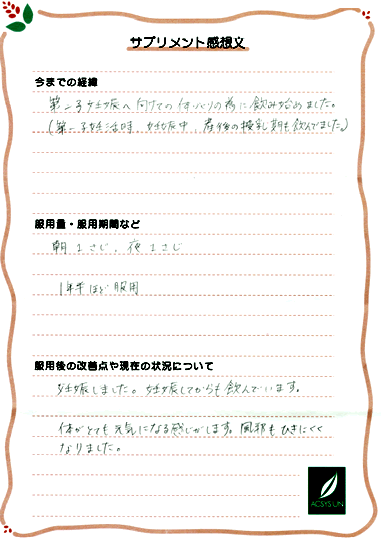 サプリメント感想文
今までの経緯
第二子妊娠へ向けての体づくりの為に飲み始めました。
(第一子妊活時、妊娠中、産後の授乳期も飲んでました)
服用量・服用期間など
朝1さじ、夜1さじ
1年半ほど服用
服用後の改善点や現在の状況について
妊娠しました。妊娠してからも飲んでいます。
体がとても元気になる感じがします。風邪もひきにくく
なりました。
ACSYS UN